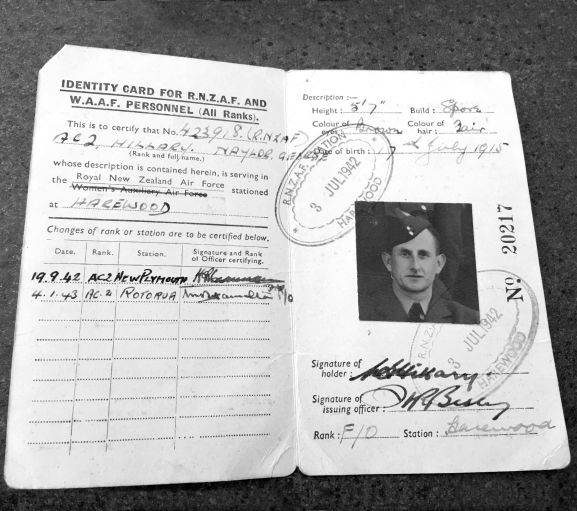 IDENTITY CARD FOR R.N.Z.A.F. AND
W.A.A.F. PERSONNEL (All Ranks).
This is to certify that No. 423918. (R.N.Z.A.F
AC2, HILLARY. NAYLOR,
(Rank and full name.)
whose description is contained herein, is serving in
the Royal New Zealand Air Force
Women's Auxiliary Air Force stationed
at HAREWOOD
Changes of rank or station are to be certified below.
Date. Rank. Station. Signature and Rank of Officer certifying.
19.9.42 AC2 NEW PLYMOUTH
4.1.43 AC.2 ROTORUA F/O
Description :—
Height : 5'7" Build : Spare
Colour of eyes : Brown Colour of hair : Fair
Date of birth : 7 July 1915
R.N.Z.A.F. STATION
3 JUL 1942
HAREWOOD
Nº 20217
R.N.Z.A.F.
3 JUL 1942
HAREWOOD
Signature of holder : Hillary
Signature of issuing officer :
Rank : F/O Station : Harewood